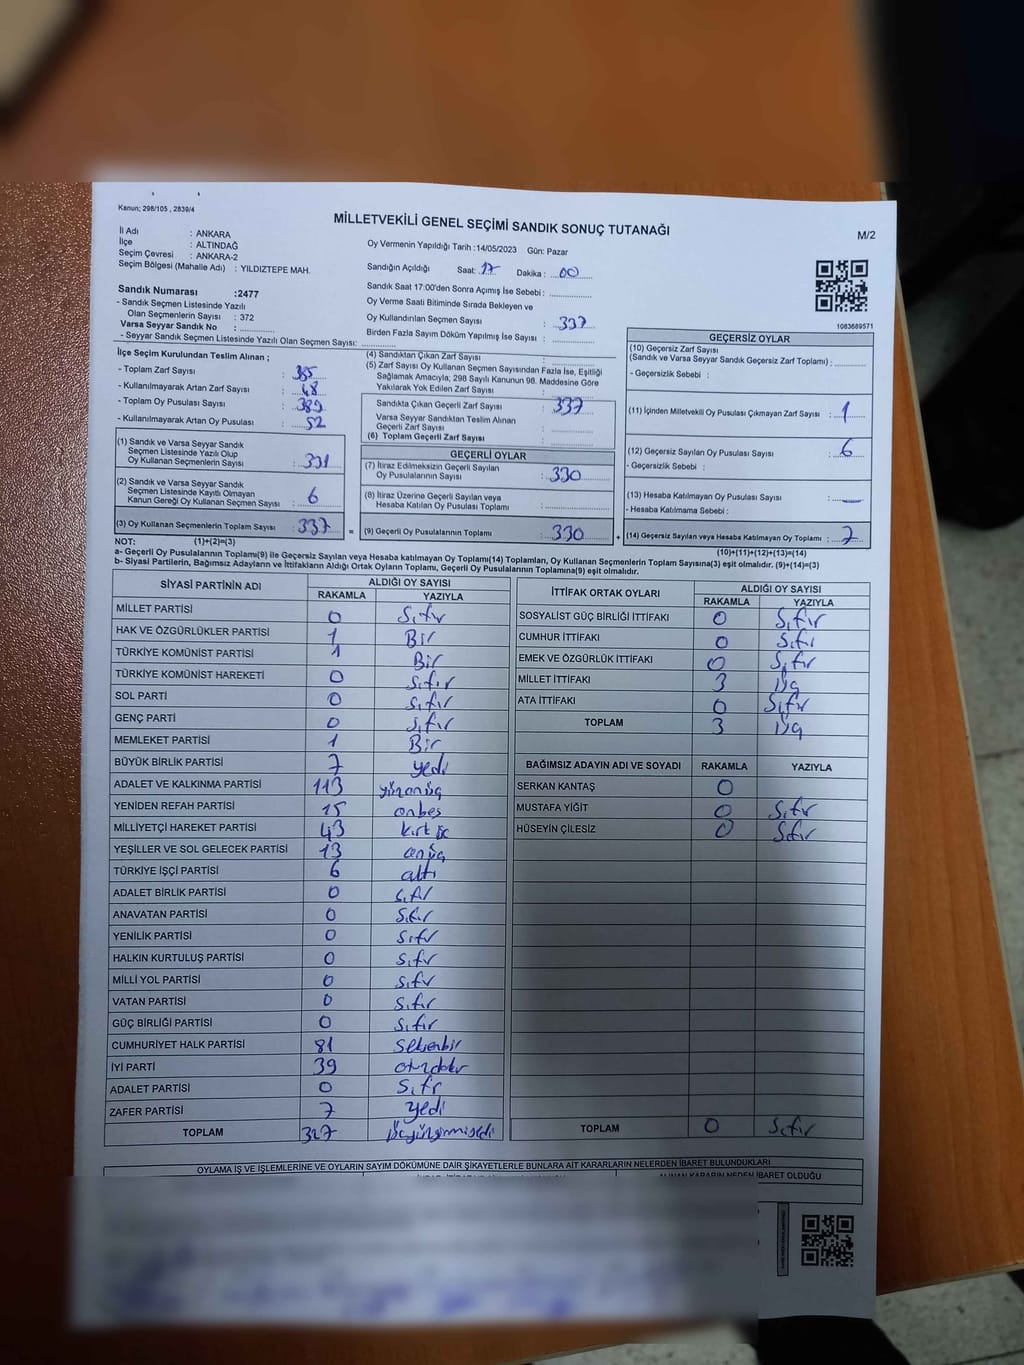 Kanun; 298/105 , 2839/4
MİLLETVEKİLİ GENEL SEÇİMİ SANDIK SONUÇ TUTANAĞI
M/2
İl Adı : ANKARA
İlçe : ALTINDAĞ
Seçim Çevresi : ANKARA-2
Seçim Bölgesi (Mahalle Adı) : YILDIZTEPE MAH.
Oy Vermenin Yapıldığı Tarih :14/05/2023 Gün: Pazar
Sandığın Açıldığı Saat: 17 Dakika : 00
Sandık Saat 17:00'den Sonra Açımış İse Sebebi :
Oy Verme Saati Bitiminde Sırada Bekleyen ve
Oy Kullandırılan Seçmen Sayısı : 337
Birden Fazla Sayım Döküm Yapılmış İse Sayısı :
Sandık Numarası :2477
- Sandık Seçmen Listesinde Yazılı
Olan Seçmenlerin Sayısı : 372
Varsa Seyyar Sandık No :
- Seyyar Sandık Seçmen Listesinde Yazılı Olan Seçmen Sayısı:
1083689571
İlçe Seçim Kurulundan Teslim Alınan ;
- Toplam Zarf Sayısı : 385
- Kullanılmayarak Artan Zarf Sayısı : 48
- Toplam Oy Pusulası Sayısı : 389
- Kullanılmayarak Artan Oy Pusulası : 52
(1) Sandık ve Varsa Seyyar Sandık
Seçmen Listesinde Yazılı Olup
Oy Kullanan Seçmenlerin Sayısı : 331
(2) Sandık ve Varsa Seyyar Sandık
Seçmen Listesinde Kayıtlı Olmayan
Kanun Gereği Oy Kullanan Seçmen Sayısı : 6
(3) Oy Kullanan Seçmenlerin Toplam Sayısı : 337
(4) Sandıktan Çıkan Zarf Sayısı :
(5) Zarf Sayısı Oy Kullanan Seçmen Sayısından Fazla İse, Eşitliği
Sağlamak Amacıyla, 298 Sayılı Kanunun 98. Maddesine Göre
Yakılarak Yok Edilen Zarf Sayısı :
Sandıkta Çıkan Geçerli Zarf Sayısı : 337
Varsa Seyyar Sandıktan Teslim Alınan
Geçerli Zarf Sayısı :
(6) Toplam Geçerli Zarf Sayısı :
GEÇERLİ OYLAR
(7) İtiraz Edilmeksizin Geçerli Sayılan
Oy Pusulalarının Sayısı : 330
(8) İtiraz Üzerine Geçerli Sayılan veya
Hesaba Katılan Oy Pusulası Toplamı :
= (9) Geçerli Oy Pusulalarının Toplamı : 330 +
GEÇERSİZ OYLAR
(10) Geçersiz Zarf Sayısı
(Sandık ve Varsa Seyyar Sandık Geçersiz Zarf Toplamı) :
- Geçersizlik Sebebi :
(11) İçinden Milletvekili Oy Pusulası Çıkmayan Zarf Sayısı : 1
(12) Geçersiz Sayılan Oy Pusulası Sayısı : 6
- Geçersizlik Sebebi :
(13) Hesaba Katılmayan Oy Pusulası Sayısı : —
- Hesaba Katılmama Sebebi :
(14) Geçersiz Sayılan veya Hesaba Katılmayan Oy Toplamı : 7
NOT: (1)+(2)=(3) (10)+(11)+(12)+(13)=(14)
a- Geçerli Oy Pusulalarının Toplamı(9) ile Geçersiz Sayılan veya Hesaba katılmayan Oy Toplamı(14) Toplamları, Oy Kullanan Seçmenlerin Toplam Sayısına(3) eşit olmalıdır. (9)+(14)=(3)
b- Siyasi Partilerin, Bağımsız Adayların ve İttifakların Aldığı Ortak Oyların Toplamı, Geçerli Oy Pusulalarının Toplamına(9) eşit olmalıdır.
SİYASİ PARTİNİN ADI ALDIĞI OY SAYISI
RAKAMLA YAZIYLA
MİLLET PARTİSİ 0 Sıfır
HAK VE ÖZGÜRLÜKLER PARTİSİ 1 Bir
TÜRKİYE KOMÜNİST PARTİSİ 1 Bir
TÜRKİYE KOMÜNİST HAREKETİ 0 Sıfır
SOL PARTİ 0 Sıfır
GENÇ PARTİ 0 Sıfır
MEMLEKET PARTİSİ 1 Bir
BÜYÜK BİRLİK PARTİSİ 7 yedi
ADALET VE KALKINMA PARTİSİ 113 yüzonüç
YENİDEN REFAH PARTİSİ 15 onbeş
MİLLİYETÇİ HAREKET PARTİSİ 43 kırk üç
YEŞİLLER VE SOL GELECEK PARTİSİ 13 onüç
TÜRKİYE İŞÇİ PARTİSİ 6 altı
ADALET BİRLİK PARTİSİ 0 Sıfır
ANAVATAN PARTİSİ 0 Sıfır
YENİLİK PARTİSİ 0 Sıfır
HALKIN KURTULUŞ PARTİSİ 0 Sıfır
MİLLİ YOL PARTİSİ 0 Sıfır
VATAN PARTİSİ 0 Sıfır
GÜÇ BİRLİĞİ PARTİSİ 0 Sıfır
CUMHURİYET HALK PARTİSİ 81 Seksenbir
İYİ PARTİ 39 otuzdokuz
ADALET PARTİSİ 0 Sıfır
ZAFER PARTİSİ 7 yedi
TOPLAM 327 üçyüzyirmiyedi
İTTİFAK ORTAK OYLARI ALDIĞI OY SAYISI
RAKAMLA YAZIYLA
SOSYALİST GÜÇ BİRLİĞİ İTTİFAKI 0 Sıfır
CUMHUR İTTİFAKI 0 Sıfır
EMEK VE ÖZGÜRLÜK İTTİFAKI 0 Sıfır
MİLLET İTTİFAKI 3 Üç
ATA İTTİFAKI 0 Sıfır
TOPLAM 3 Üç
BAĞIMSIZ ADAYIN ADI VE SOYADI RAKAMLA YAZIYLA
SERKAN KANTAŞ 0
MUSTAFA YİĞİT 0 Sıfır
HÜSEYİN ÇİLESİZ 0 Sıfır
TOPLAM 0 Sıfır
OYLAMA İŞ VE İŞLEMLERİNE VE OYLARIN SAYIM DÖKÜMÜNE DAİR ŞİKAYETLERLE BUNLARA AİT KARARLARIN NELERDEN İBARET BULUNDUKLARI
ALINAN KARARIN NEDEN İBARET OLDUĞU